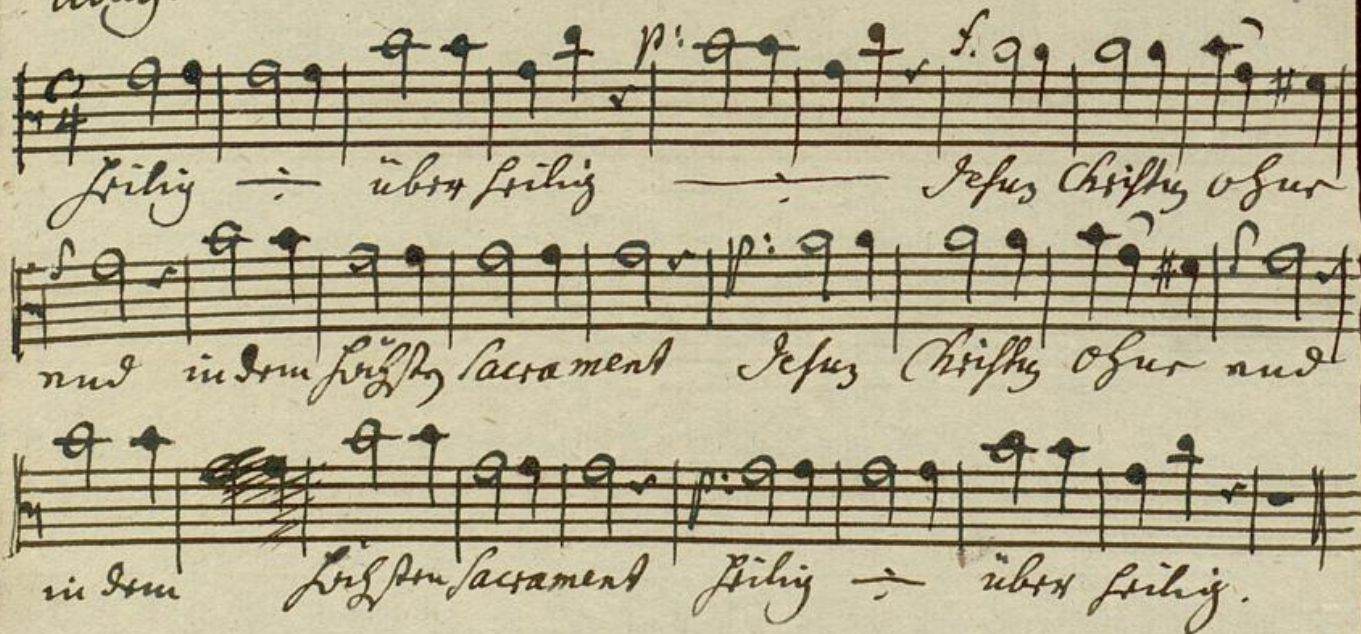 p: f.
heilig ÷ über heilig ÷ Jesus Christus ohne
p:
end in dem höchsten Sacrament Jesus Christus ohne end
p:
in dem höchsten Sacrament heilig ÷ über heilig.